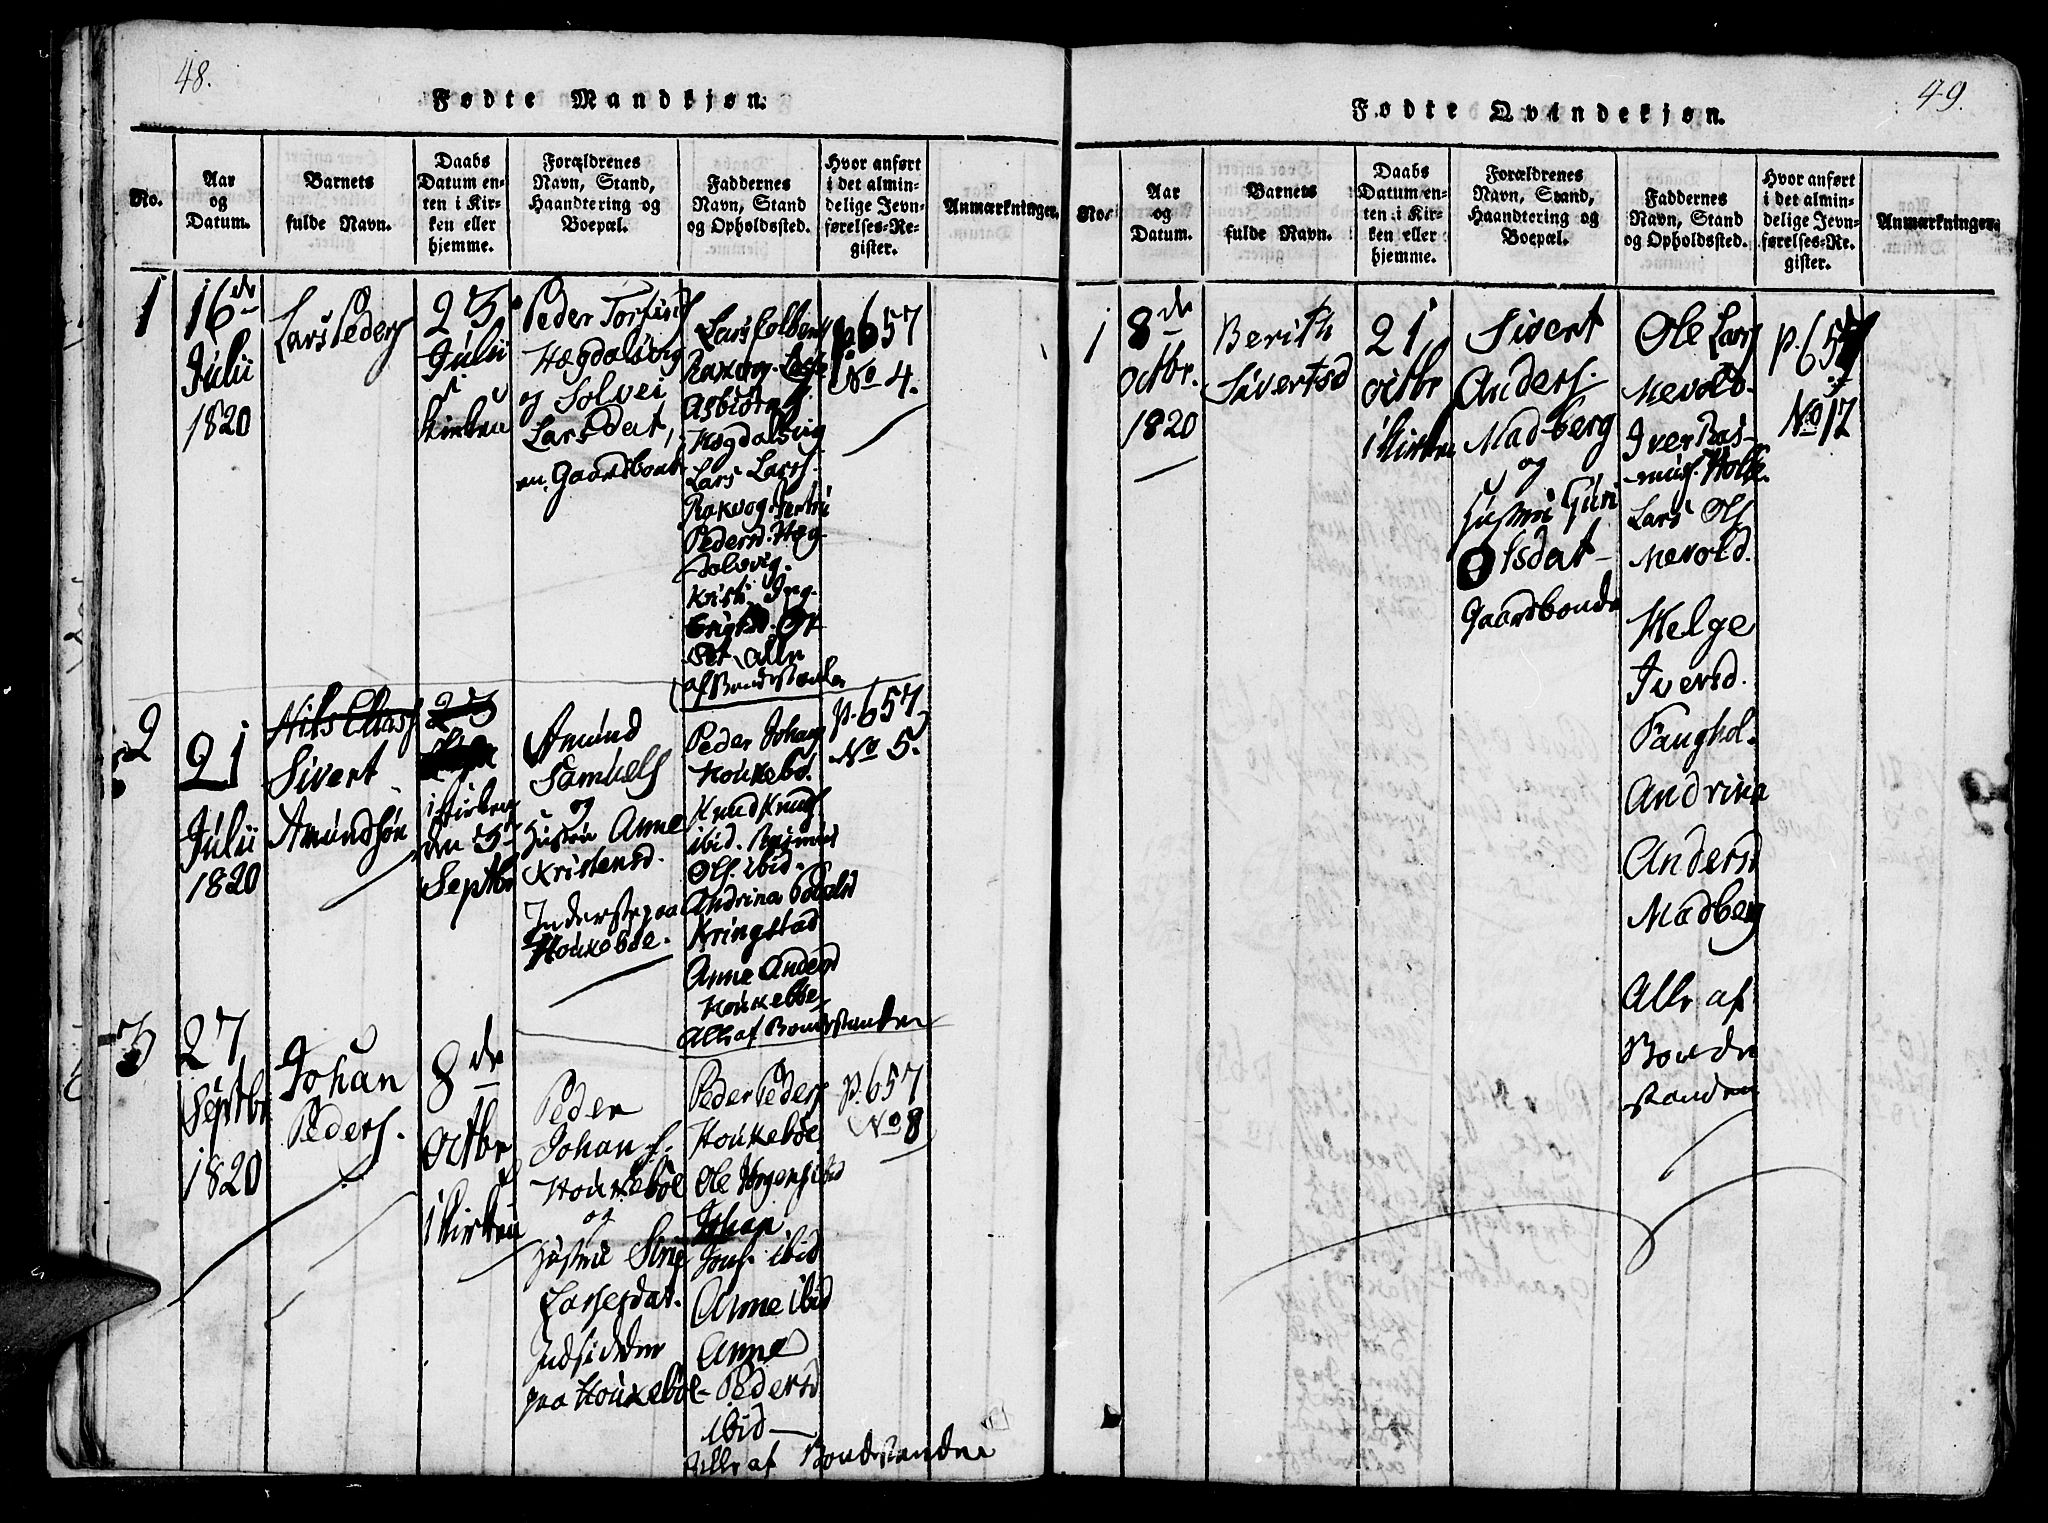 48.
Fødte Mandkjøn.
No.
Aar
og
Datum.
Barnets
fulde Navn.
Daabs
Datum en-
ten i Kir-
ken eller
hjemme.
Forældrenes
Navn, Stand,
Haandtering og
Boepæl.
Faddernes
Navn, Stand
og Opholdssted.
Hvor anført
i det almin-
delige Jevn-
førelses-Re-
gister.
Anmærkninger.
1
16de
Julii
1820
Lars Peders
23
Julii
i
Kirken
Peder
Hægdalsvig
og Solvei
Larsdat,
en Gaardbond
Lars
Lars Lars.
Pedersd. Hæg-
dalsvig.
Alle
af Bondestanden
p. 657
No 4.
2
21
Julii
1820
Nils Elias
Sivert
Amundsøn
i Kirken
den 3
Septbr
Amund
Samuels
og
Hustrue Anne
Kristensd.
Inderste paa
Houkebøe.
Peder Johans
Houkebø.
Knud Knuds
ibid. Rasmus
Ols. ibid.
Andrina
Kringstad
Anne Andersd
Houkebøe
Alle af Bondestanden
p. 657
No 5.
3
27
Septbr
1820
Johan
Peders.
8de
Octbr
i Kirken
Peder
Johans.
Houkebøe
og
Hustrue
Larsesdat.
Indsidder
paa Houkebøe
Peder Peders
Houkebøe
Ole Jørgens ibid
Johan
Jons. ibid
Anne ibid
Anne
Pedersd
ibid
Alle af Bondestanden
p. 657
No 8
49.
Fødte Qvindekjøn.
No.
Aar
og
Datum.
Barnets
fulde Navn.
Daabs
Datum en-
ten i Kir-
ken eller
hjemme.
Forældrenes
Navn, Stand,
Haandtering og
Boepæl.
Faddernes
Navn, Stand
og Opholdssted.
Hvor anført
i det almin-
delige Jevn-
førelses-Re-
gister.
Anmærkninger.
1
8de
Octbr.
1820
Berith
Sivertsd
21
Octbr
i Kirken
Sivert
Anders.
Madberg
og
Hustrue Guri
Olsdat
Gaardbonde
Ole Lars
Mevold.
Iver Ras-
mus. Holle.
Lars Ols
Mevold.
Helge
Iversd.
Fanghol.
Andrina
Andersd
Madberg
Alle af
Bonde
standen
p. 657
No 12